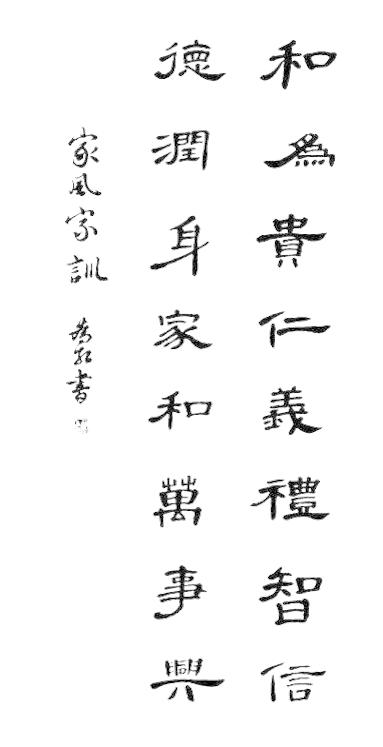 和為貴仁義禮智信
德潤身家和萬事興
家風家訓 書